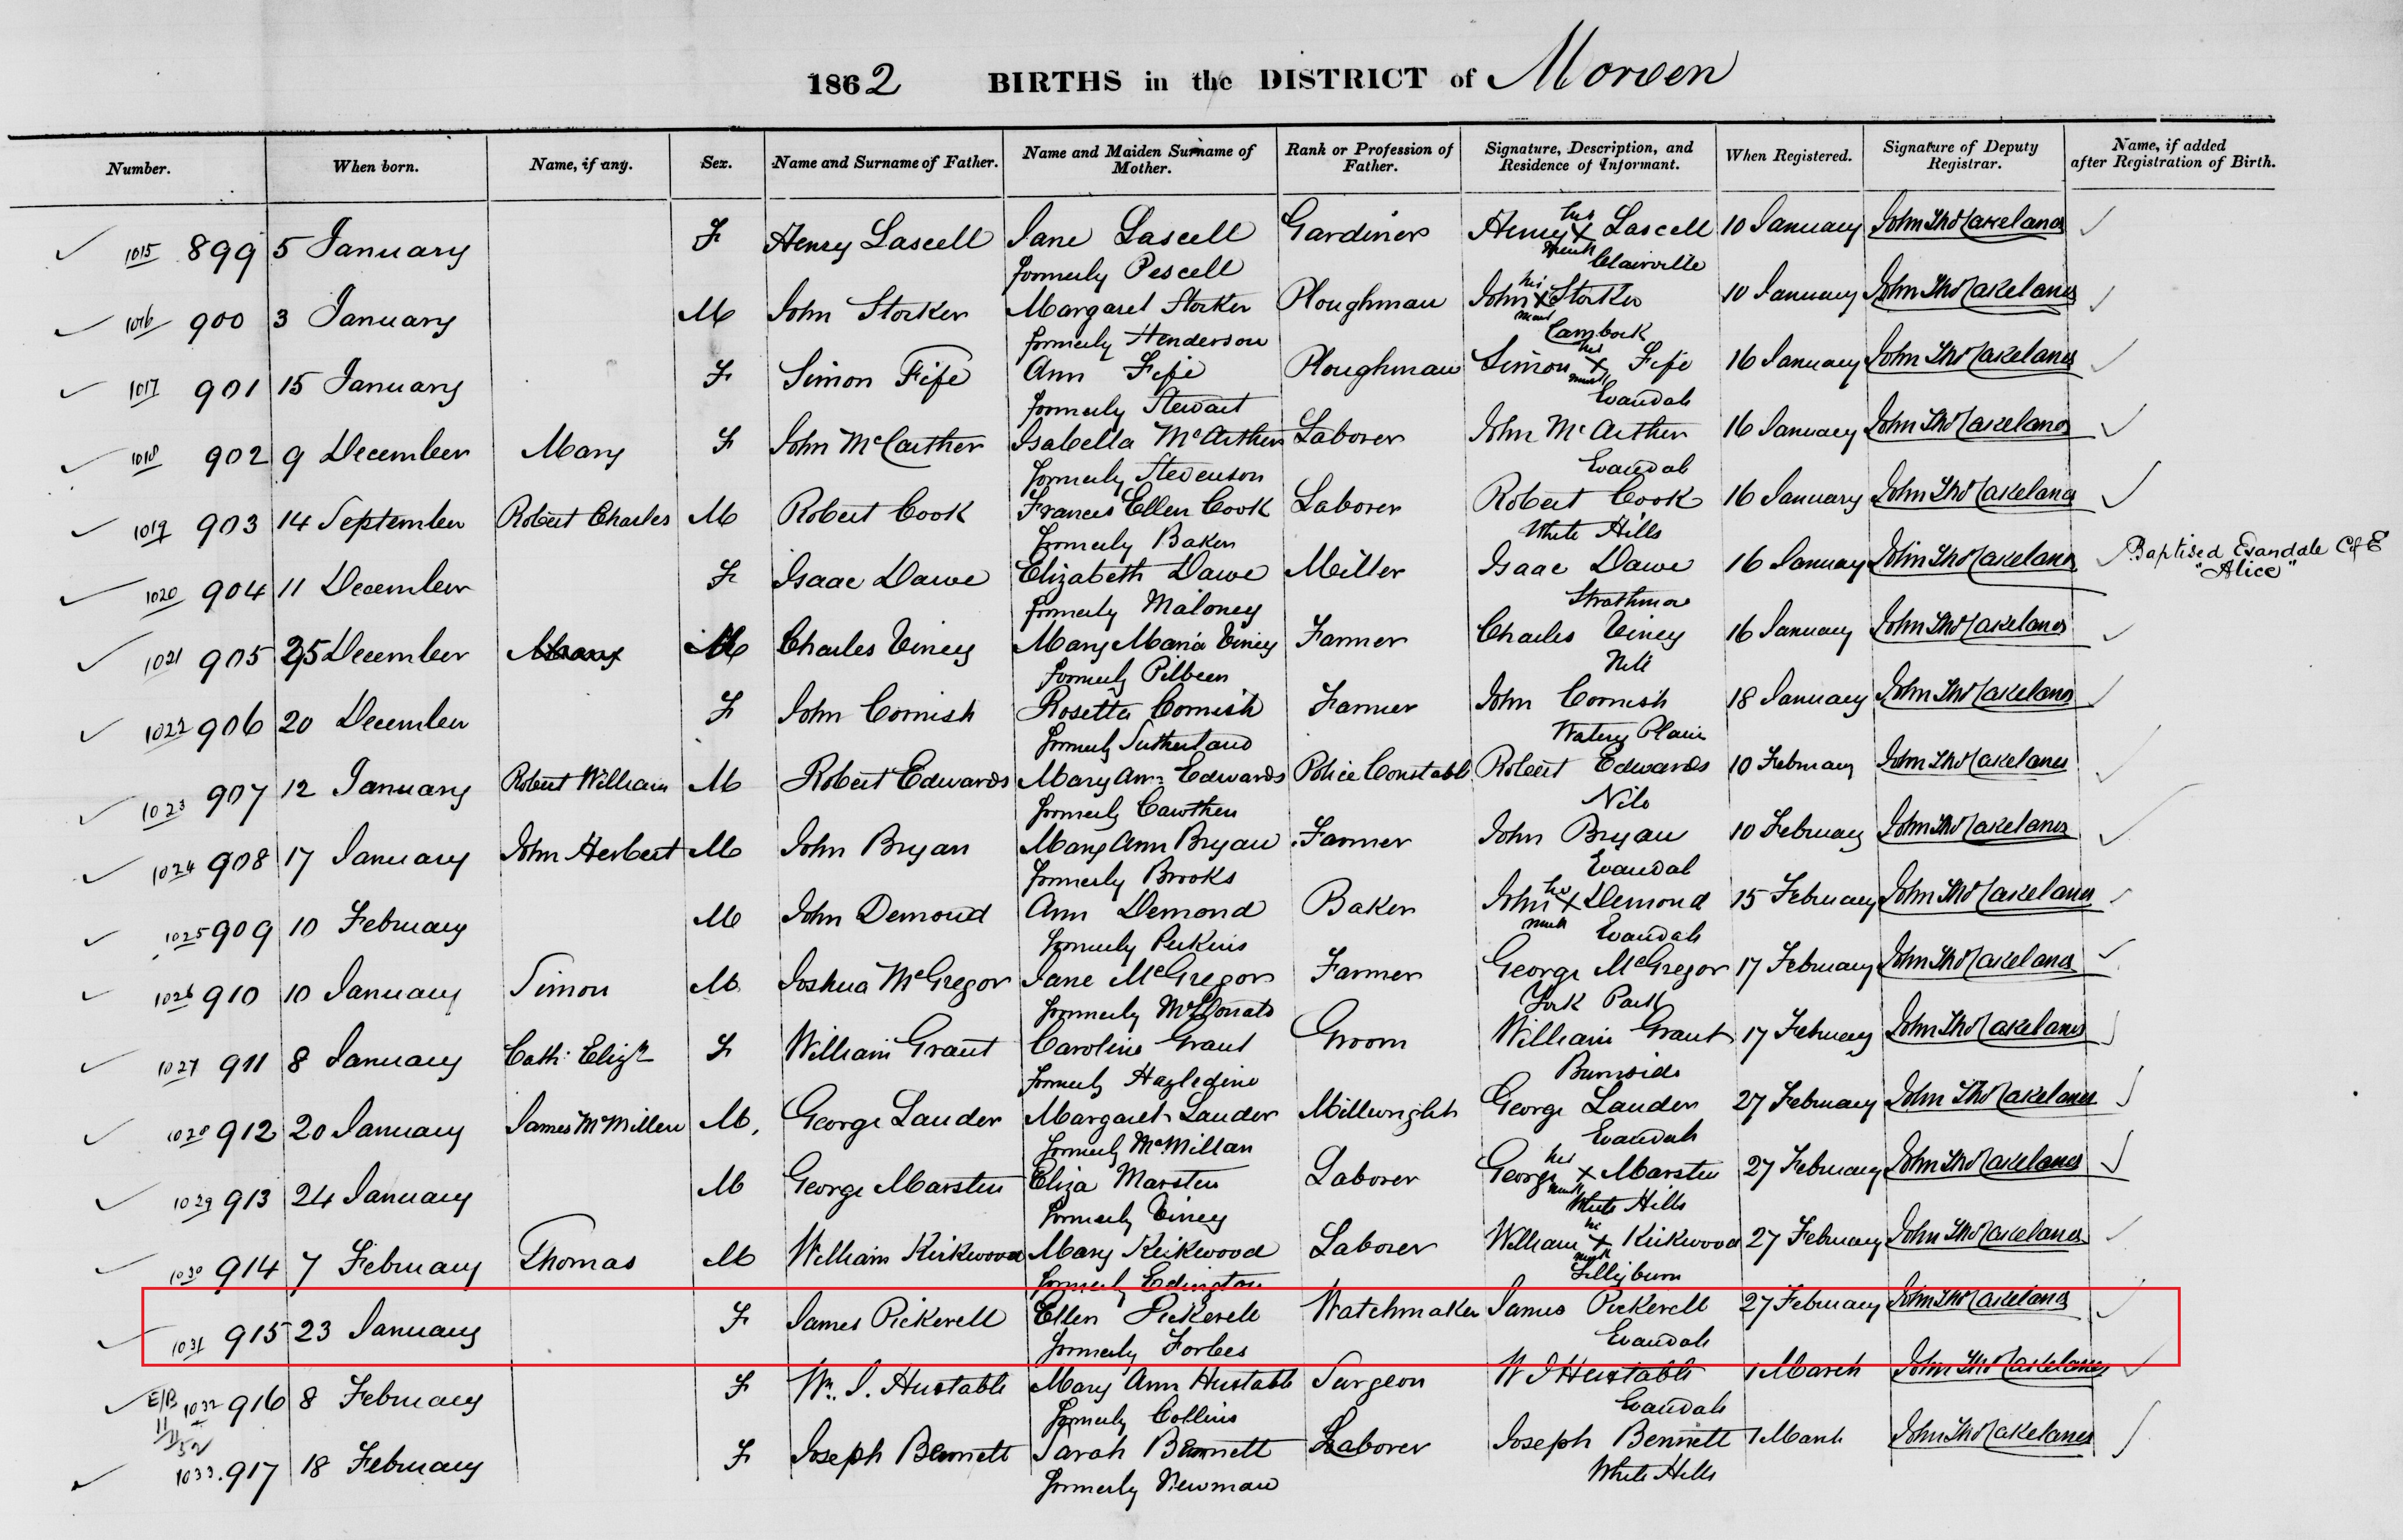 1862 BIRTHS in the DISTRICT of Morven
Number. When born. Name, if any. Sex. Name and Surname of Father. Name and Maiden Surname of Mother. Rank or Profession of Father. Signature, Description, and Residence of Informant. When Registered. Signature of Deputy Registrar. Name, if added after Registration of Birth.
1015 899 5 January F Henry Lascell Jane Lascell Gardiner Henry his x Lascell 10 January John Tho
formerly Pescell mark Clairville
1016 900 3 January M John Storker Margaret Storker Ploughman John his x Storker 10 January John Tho
formerly Henderson mark Cambock
1017 901 15 January F Simon Fife Ann Fife Ploughman Simon his x Fife 16 January John Tho
formerly Stewart mark Evandale
1018 902 9 December Mary F John McArther Isabella McArthur Laborer John McArther 16 January John Tho
formerly Stevenson Evandale
1019 903 14 September Robert Charles M Robert Cook Frances Ellen Cook Laborer Robert Cook 16 January John Tho
formerly Baker White Hills
1020 904 11 December F Isaac Dawe Elizabeth Dawe Miller Isaac Dawe 16 January John Tho Baptised Evandale C of E
formerly Maloney Strathmore "Alice"
1021 905 25 December M Charles Viney Mary Maria Viney Farmer Charles Viney 16 January John Tho
formerly Pilbeen Nile
1022 906 20 December F John Cornish Rosetta Cornish Farmer John Cornish 18 January John Tho
formerly Sutherland Watery Plain
1023 907 12 January Robert William M Robert Edwards Mary Ann Edwards Police Constable Robert Edwards 10 February John Tho
formerly Cawthen Nile
1024 908 17 January John Herbert M John Bryan Mary Ann Bryan Farmer John Bryan 10 February John Tho
formerly Brooks Evandale
1025 909 10 February M John Demond Ann Demond Baker John his x Demond 15 February John Tho
formerly Perkins mark Evandale
1026 910 10 January Simon M Joshua McGregor Jane McGregor Farmer George McGregor 17 February John Tho
formerly McDonald York Park
1027 911 8 January Cath. Elizth F William Grant Caroline Grant Groom William Grant 17 February John Tho
formerly Hazledine Burnside
1028 912 20 January James McMillen M. George Lauder Margaret Lauder Millwright George Lauder 27 February John Tho
formerly McMillan Evandale
1029 913 24 January M George Marsten Eliza Marsten Laborer George his x Marsten 27 February John Tho
formerly Viney mark White Hills
1030 914 7 February Thomas M William Kirkwood Mary Kirkwood Laborer William his x Kirkwood 27 February John Tho
formerly Edington mark Lillyburn
1031 915 23 January F James Pickerell Ellen Pickerell Watchmaker James Pickerell 27 February John Tho
formerly Forbes Evandale
E/B 1032 916 8 February F Wm. I. Hustable Mary Ann Hustable Surgeon W I Hustable 1 March John Tho
formerly Collins Evandale
1033 917 18 February F Joseph Bennett Sarah Bennett Laborer Joseph Bennett 1 March John Tho
formerly Newman White Hills